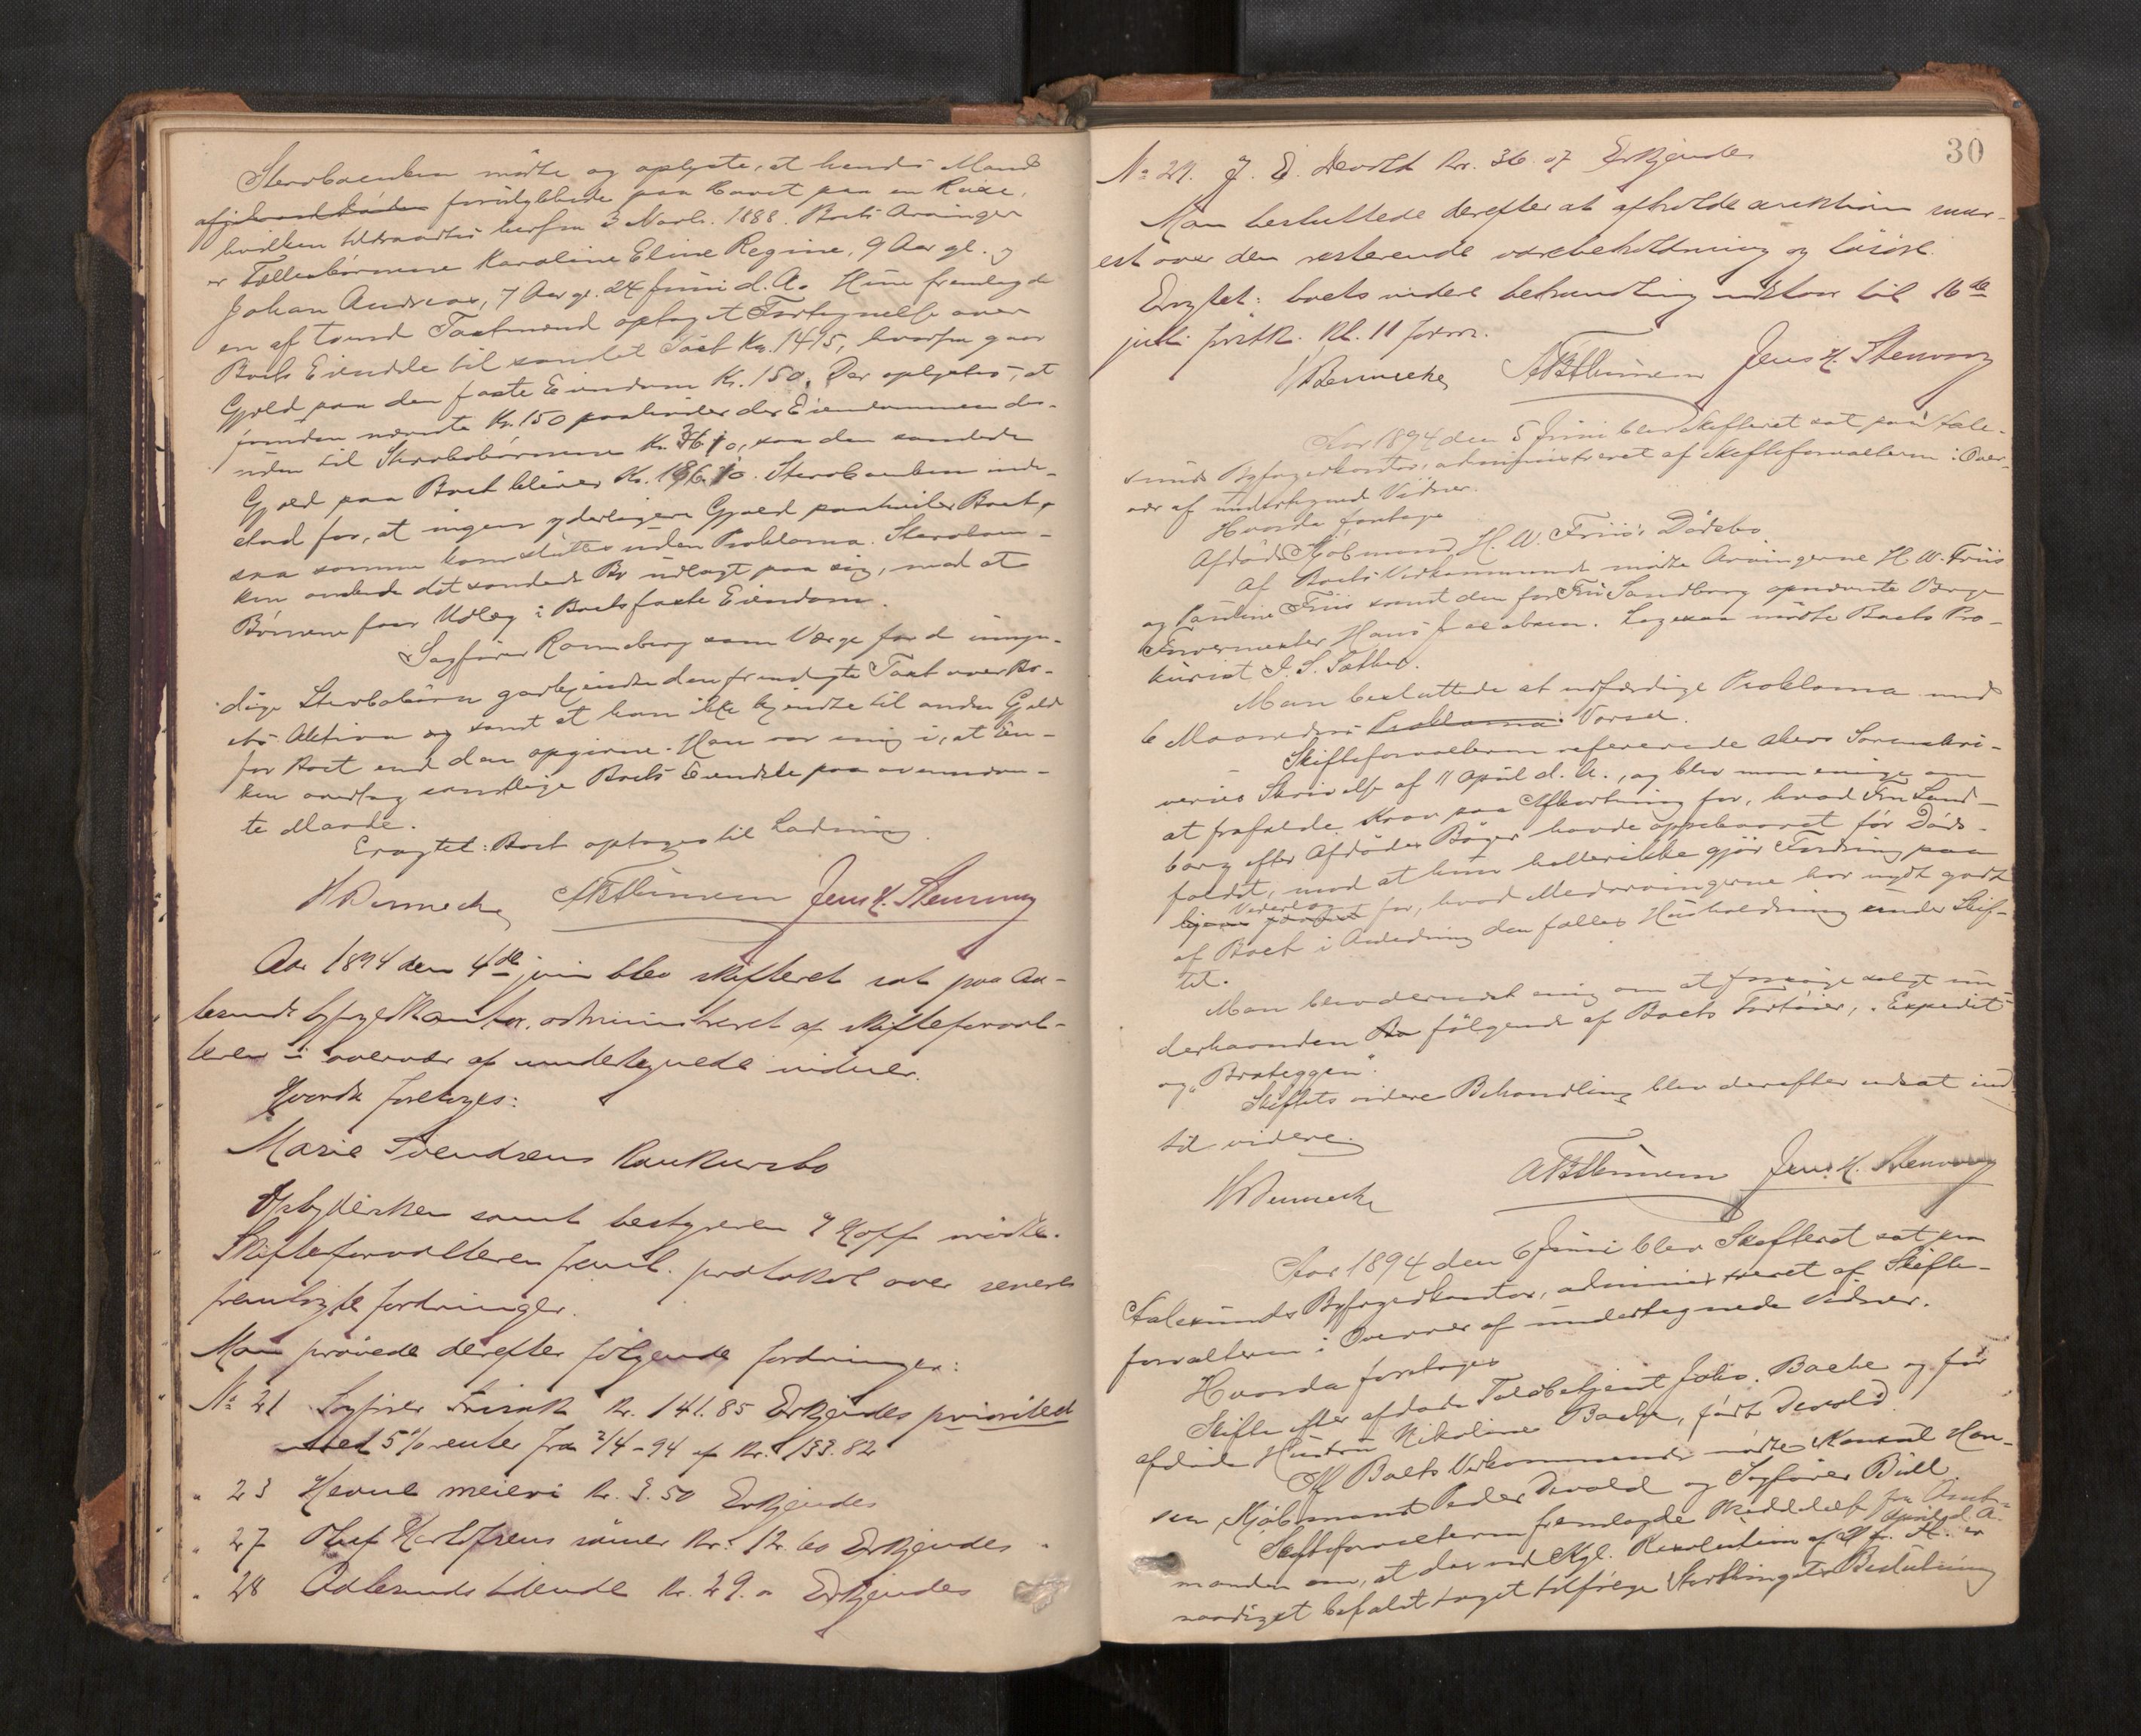 Stervboenken mødte og oplyste, at hendes Mand
forulykkede paa Havet paa en Reise,
hvilken tiltraadtes herfra 3 Novb. 1888. Boets Arvinger
er Fællesbørnene Karoline Eline Regine, 9 Aar gl. og
Johan Andreas, 7 Aar gl. 24 Juni d. A. Hun fremlagde
en af tvende Taxtmænd optaget Fortegnelse over
Boets Eiendele til samlet Taxt Kr. 1415, hvorfra gaar
Gjæld paa den faste Eiendom Kr. 150. Der oplystes, at
foruden nævnte Kr. 150 paahviler der Eiendommen des-
uden til Stervbobørnene Kr. 36.10, saa den samlede
Gjæld paa Boet bliver Kr. 186.10. Stervboenken inde-
stod for, at ingen yderligere Gjæld paahviler Boet,
saa samme kan sluttes uden Proklama. Stervboen-
ken ønskede det samlede Bo udlagt paa sig, mod at
Børnene faar Udlæg i Boets faste Eiendom.
Sagfører Ronneberg som Værge for de umyn-
dige Stervbobørn godkjendte den fremlagte Taxt over Bo-
ets Aktiva og samt at han ikke kjendte til anden Gjæld
for Boet end den opgivne. Han var enig i, at En-
ken overtog samtlige Boets Eiendele paa ovennævn-
te Maade.
Eragtet: Boet optages til Ladning.
Jens K. Stenvaag
Aar 1894 den 4de juni blev skifteret sat paa Aa-
lesunds byfogedkontor, administreret af skifteforval-
teren i overvær af undertegnede vidner.
Hvorda foretoges:
Marie Svendsens konkursbo
Opbydersken samt bestyreren Hoff mødte.
Skifteforvalteren freml. protokol over senere
fremlagte fordringer.
Man prøvede derefter følgende fordringer:
No 21 Sagfører Frisak kr. 141.85 Erkjendes prioriteret
med 5% renter fra 2/4-94 af kr. 133.82
" 23 Herul meieri kr. 3.50 Erkjendes
" 27 Oluf sønner kr. 12.60 Erkjendes
" 28 Aalesunds tidende kr. 29.0 Erkjendes
30
No 29. J. E. Devold kr. 36.07 Erkjendes
Man besluttede derefter at afholde auktion snar-
est over den resterende varebeholdning og løsøre.
Eragtet: boets videre behandling udstaar til 16de
juli førstk. kl. 11 form.
Jens K. Stenvaag
Aar 1894 den 5 Juni blev Skifteret sat paa Aale-
sunds Byfogedkontor, administreret af Skifteforvalteren i Over-
vær af undertegnede Vidner.
Hvorda foretoges
Afdøde Kjøbmand H. W. Friis's Dødsbo
Af Boets Vedkommende mødte Arvingerne H. W. Friis
og Pauline Friis samt den for Fru Sandborg opnævnte Værge
Farvermester Hans Jacobsen. Ligesaa mødte Boets Pro-
kurist I. S. Sæther.
Man besluttede at udfærdige Proklama med
6 Maaneders Proklama Varsel.
Skifteforvalteren refererede
Skrivelse af 11 April d. A., og blev man enige om
at frafalde Krav paa Afkortning for, hvad Fru Sand-
borg efter Afdødes Bøger havde oppebaaret før Døds-
faldet, mod at hun heller ikke gjør Fordring paa
Vederlag for, hvad Medarvingerne har nydt godt
af Boet i Anledning den fælles Husholdning under Skif-
tet.
Man blev dernæst enig om at forsøge solgt un-
derhaanden følgende af Boets Fartøier, "Expedit"
og "Brateggen".
Skiftets videre Behandling blev derefter udsat ind-
til videre.
Jens K. Stenvaag
Aar 1894 den 6 Juni blev Skifteret sat paa
Aalesunds Byfogedkontor, administreret af Skifte-
forvalteren i Overvær af undertegnede Vidner.
Hvorda foretoges
Skifte efter afdøde Toldbetjent Johs. Backe og før
afdøde Hustru Nikoline Backe, født Devold.
Af Boets Vedkommende mødte Konsul Han-
sen, Kjøbmand Peder Devold og Sagfører Bull.
Skifteforvalteren fremlagde Meddelelse fra Amt-
manden om, at der ved Kgl. Resolution af April d. A. er
naadigst befalet taget tilfølge Storthingets Beslutning